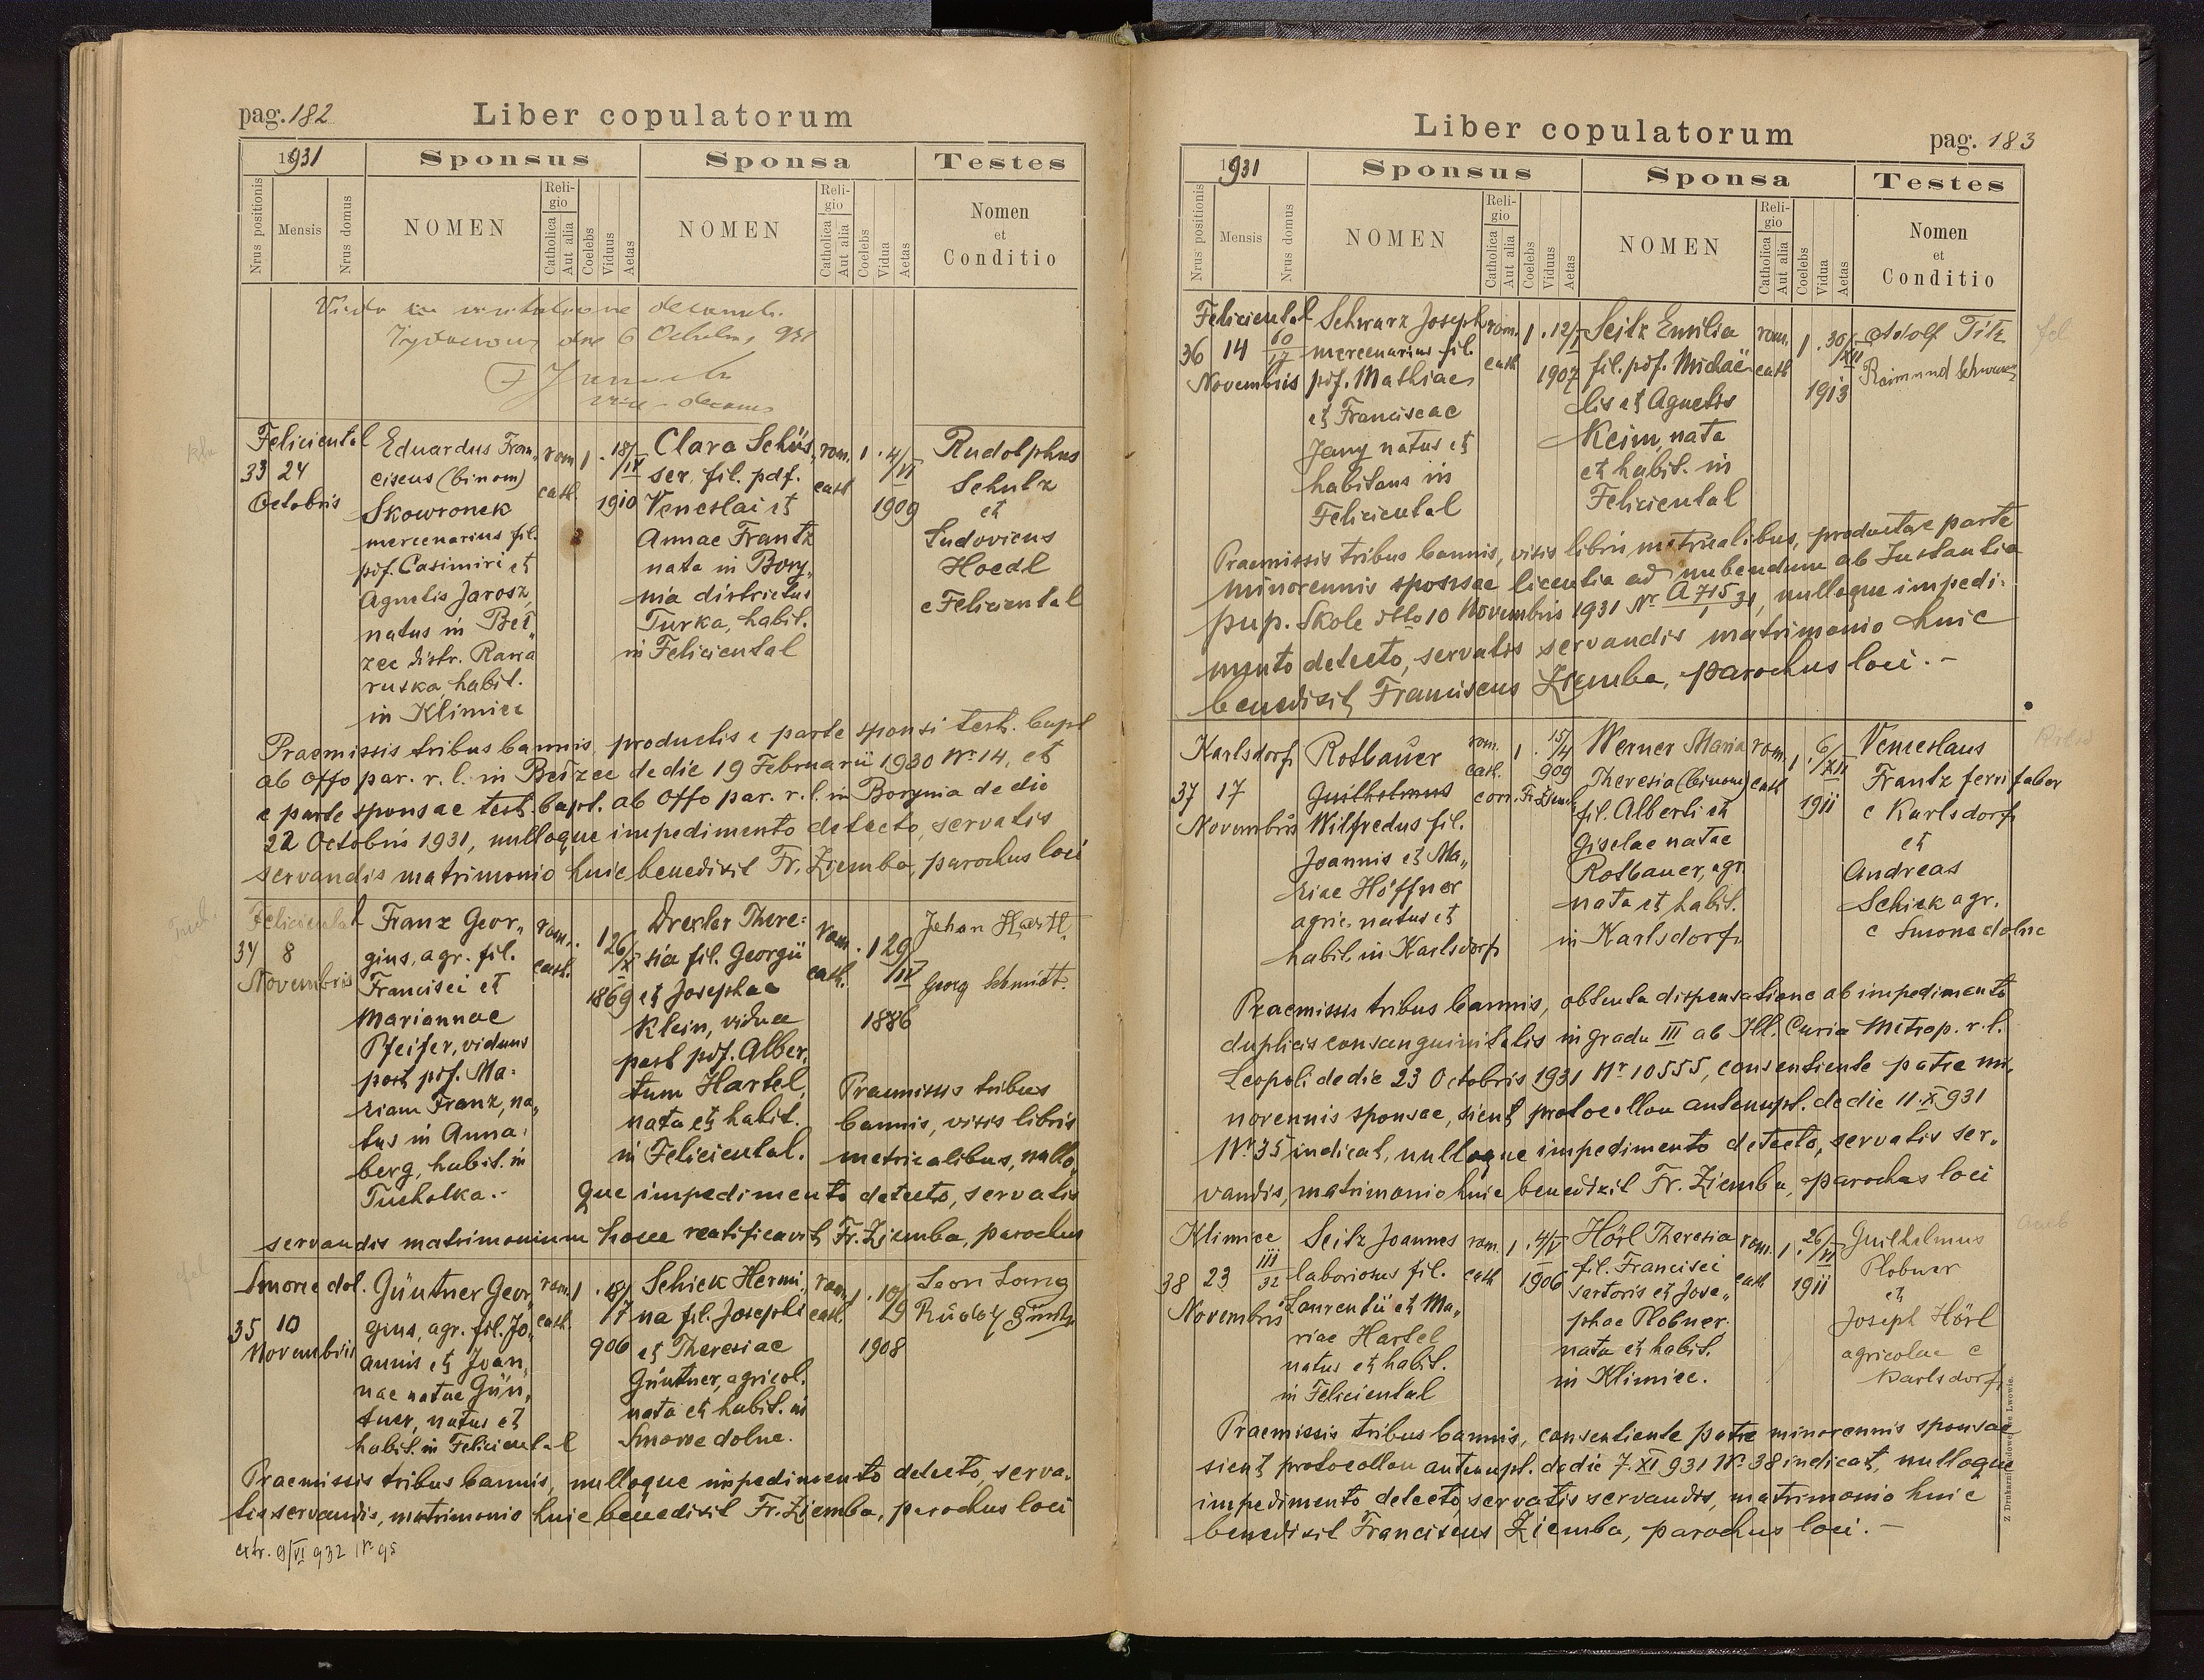 pag. 182
Liber copulatorum
1931
Sponsus
Sponsa
Testes
Nrus positionis
Mensis
Nrus domus
NOMEN
Religio
Catholica
Aut alia
Coelebs
Viduus
Aetas
NOMEN
Religio
Catholica
Aut alia
Coelebs
Vidua
Aetas
Nomen
et
Conditio
6 Octobris 931
vice-decanus
Feliciental
33 24
Octobris
Eduardus Fran„
ciscus (binom)
Skowronek
mercenarius fil.
pdf. Casimiri et
Agnetis Jarosz,
natus in Beł„
zec distr. Rawa
ruska, habit.
in Klimiec
rom.
cath.
1 . 18/IV
1910
Clara Schüs„
ser, fil. pdf.
Venceslai et
Annae Frantz
nata in Bory„
nia districtus
Turka, habit.
in Feliciental
rom.
cath.
1 . 4/VI
1909
Rudolphus
Schulz
et
Ludovicus
Hoedl
e Feliciental
Praemissis tribus bannis, productis e parte sponsi test. bapt
ab Offo par. r. l. in Bełzec de die 19 Februarii 1930 Nr 14, et
e parte sponsae test. bapt. ab Offo par. r. l. in Borynia de die
22 Octobris 1931, nulloque impedimento detecto, servatis
servandis matrimonio huic benedixit Fr. Ziemba, parochus loci
Feliciental
34 8
Novembris
Franz Geor„
gius, agr. fil.
Francisci et
Mariannae
Pfeifer, viduus
post pdf. Ma=
riam Franz, na„
tus in Anna=
berg, habit. in
Tucholka.-
rom.
cath.
1 26/X
1869
Drexler There=
sia fil. Georgii
et Josephae
Klein, vidua
post pdf. Alber„
tum Hartel,
nata et habit.
in Feliciental.
rom.
cath.
1 29/IV
1886
Johan Hartl
Georg Schmidt.
Praemissis tribus
bannis, visis libris
metricalibus, nullo„
que impedimento detecto, servatis
servandis matrimonium hocce ratificavit Fr. Ziemba, parochus
Smorze dol.
35 10
Novembris
Güntner Geor„
gius, agr. fil. Jo„
annis et Joan„
nae natae Gün„
tner, natus et
habit. in Feliciental
rom.
cath.
1 .
906
Schick Hermi„
na fil. Josephi
et Theresiae
Güntner, agricol.
nata et habit. in
Smorze dolne.
rom.
cath.
1908
Leon Lang
Praemissis tribus bannis, nulloque impedimento detecto, serva„
tis servandis, matrimonio huic benedixit Fr. Ziemba, parochus loci
extr. 9/VI 932 Nr 95
Liber copulatorum
pag. 183
1931
Sponsus
Sponsa
Testes
Nrus positionis
Mensis
Nrus domus
NOMEN
Religio
Catholica
Aut alia
Coelebs
Viduus
Aetas
NOMEN
Religio
Catholica
Aut alia
Coelebs
Vidua
Aetas
Nomen
et
Conditio
Feliciental
36 14 60/17
Novembris
Schwarz Joseph
mercenarius fil.
pdf. Mathiae
et Franciscae
Jany natus et
habitans in
Feliciental
rom.
cath
1 . 12/I
1907
Seitz Emilia
fil. pdf. Michaë„
lis et Agnetis
Keim, nata
et habit. in
Feliciental
rom.
cath
1 . 30/XII
1913
Adolf Titz
Raimund Schwarz
Praemissis tribus bannis, visis libris metricalibus, producta e parte
minorennis sponsae licentia ad nubendum ab Instantia
pup. Skole ddto 10 Novembris 1931 Nr A 715/31, nulloque impedi-
mento detecto, servatis servandis matrimonio huic
benedixit Franciscus Ziemba, parochus loci.-
Karlsdorf
37 17
Novembris
Rotbauer
Guilhelmus
Wilfredus fil.
Joannis et Ma„
riae Höffner
agric. natus et
habit. in Karlsdorf
rom.
cath.
corr. Fr. Ziemba
1 . 15/4
909
Werner Maria
Theresia (binom)
fil. Alberti et
Giselae natae
Rotbauer, agr.
nata et habit.
in Karlsdorf
rom.
cath
1 . 6/XII
1911
Venceslaus
Frantz ferri faber
e Karlsdorf
et
Andreas
Schick agr.
e Smorze dolne
Praemissis tribus bannis, obtenta dispensatione ab impedimento
duplicis consanguinitatis in gradu III ab Ill. Curia Metrop. r. l.
Leopoli de die 23 Octobris 1931 Nr 10555, consentiente patre mi„
norennis sponsae, sicut protocollon antenupt. de die 11.X.931
Nr. 35 indicat, nulloque impedimento detecto, servatis ser„
vandis, matrimonio huic benedixit Fr. Ziemba, parochus loci
Klimiec
38 23 III/32
Novembris
Seitz Joannes
laboriosus fil.
Laurentii et Ma„
riae Hartel
natus et habit.
in Feliciental
rom.
cath
1 . 4/V
1906
Hörl Theresia
fil. Francisci
sartoris et Jose„
phae Plobner
nata et habit.
in Klimiec.
rom.
cath
1 . 26/VI
1911
Guilhelmus
Plobner
et
Joseph Hörl
agricolae e
Karlsdorf
Praemissis tribus bannis, consentiente patre minorennis sponsae
sicut protocollon antenupt. de die 7.XI 931 Nr. 38 indicat, nulloque
impedimento detecto, servatis servandis, matrimonio huic
benedixit Franciscus Ziemba, parochus loci.-